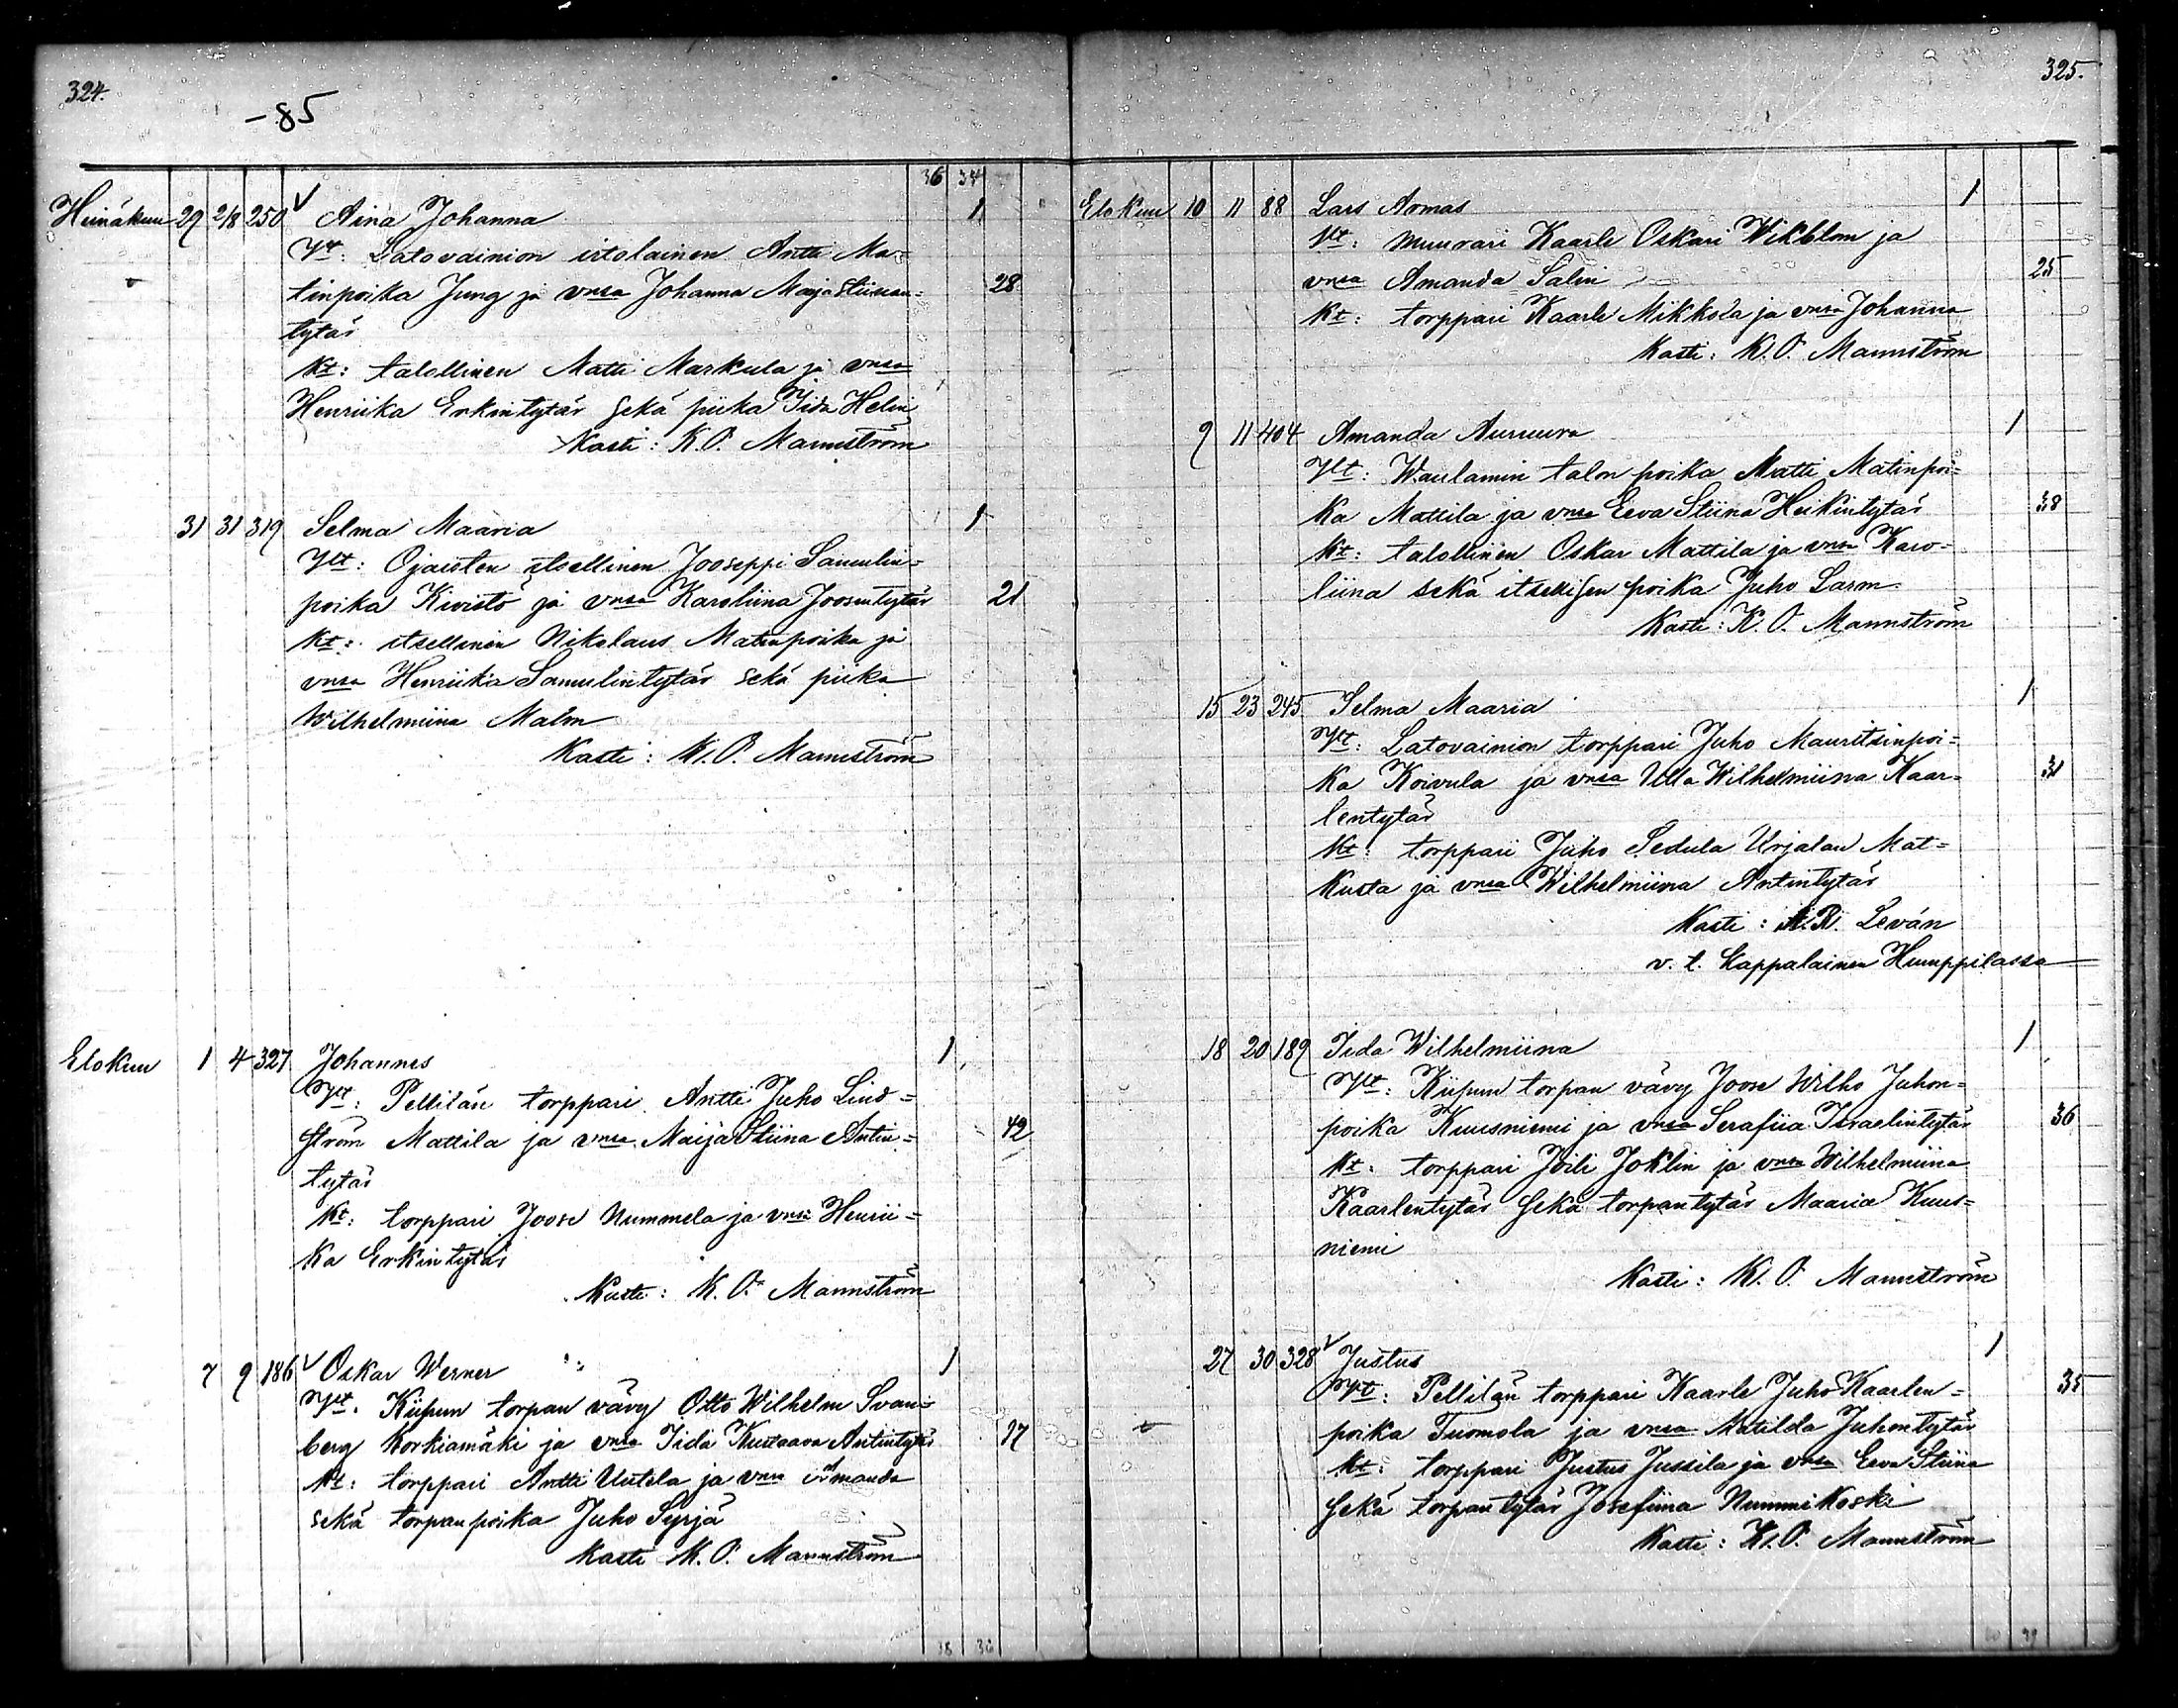 324.
-85
36 34
Heinäkuu 29 2/8 250 √ Aina Johanna 1
Vt: Latovainion irtolainen Antti Ma-
tinpoika Jung ja vnsa Johanna Maja Stiinan- 28
tytär
Kt: talollinen Matti Markula ja vnsa
Henriika Erkintytär sekä piika Iida Helin
Kasti: K.O. Mannström
31 31 319 Selma Maaria 1
Vt: Ojaisten itsellinen Jooseppi Samulin-
poika Kivistö ja vnsa Karoliina Joosentytär 21
Kt: itsellinen Nikolaus Matinpoika ja
vnsa Henriika Samulintytär sekä piika
Wilhelmiina Malm
Kasti: K.O. Mannström
Elokuu 1 4 327 Johannes 1
Vt: Pellilän torppari Antti Juho Lind-
ström Mattila ja vnsa Maija Stiina Antin- 42
tytär
Kt: torppari Joose Nummela ja vnsa Henrii-
ka Erkintytär
Kasti: K.O. Mannström
7 9 186 √ Oskar Werner 1
Vt. Kiipun torpan vävy Otto Wilhelm Svan-
berg Korkiamäki ja vnsa Iida Kustaava Antintytär 37
Kt: torppari Antti Uutela ja vnsa Amanda
sekä torpanpoika Juho Syrjä
Kasti K.O. Mannström
38 36
325.
Elokuu 10 11 88 Lars Armas 1
Vt: muurari Kaarle Oskari Wikblom ja
vnsa Amanda Salin 25
Kt: torppari Kaarle Mikkola ja vnsa Johanna
Kasti: K.O. Mannström
9 11 404 Amanda Auruura 1
Vt: Waulamin talon poika Matti Matinpoi-
ka Mattila ja vnsa Eeva Stiina Heikintytär 38
Kt: talollinen Oskar Mattila ja vnsa Karo-
liina sekä itsellisen poika Juho Larm
Kasti: K.O. Mannström
15 23 245 Selma Maaria 1
Vt: Latovainion torppari Juho Mauritsinpoi-
ka Koivula ja vnsa Ulla Wilhelmiina Kaar- 31
lentytär
Kt: torppari Juho Sedula Urjalan Mat-
kusta ja vnsa Wilhelmiina Antintytär
Kasti: K.R. Leván
v. t. Kappalainen Humppilassa
18 20 189 Iida Wilhelmiina 1
Vt: Kiipun torpan vävy Joose Wilho Juhon-
poika Kuusniemi ja vnsa Serafiia Israelintytär 36
Kt: torppari Joili Joklin ja vnsa Wilhelmiina
Kaarlentytär sekä torpantytär Maaria Kuus-
niemi
Kasti: K.O. Mannström
27 30 328 √ Justus 1
Vt: Pellilän torppari Kaarle Juho Kaarlen- 35
poika Tuomola ja vnsa Matilda Juhontytär
Kt: torppari Justus Jussila ja vnsa Eeva Stiina
sekä torpantytär Josefiina Nummikoski
Kasti: K.O. Mannström